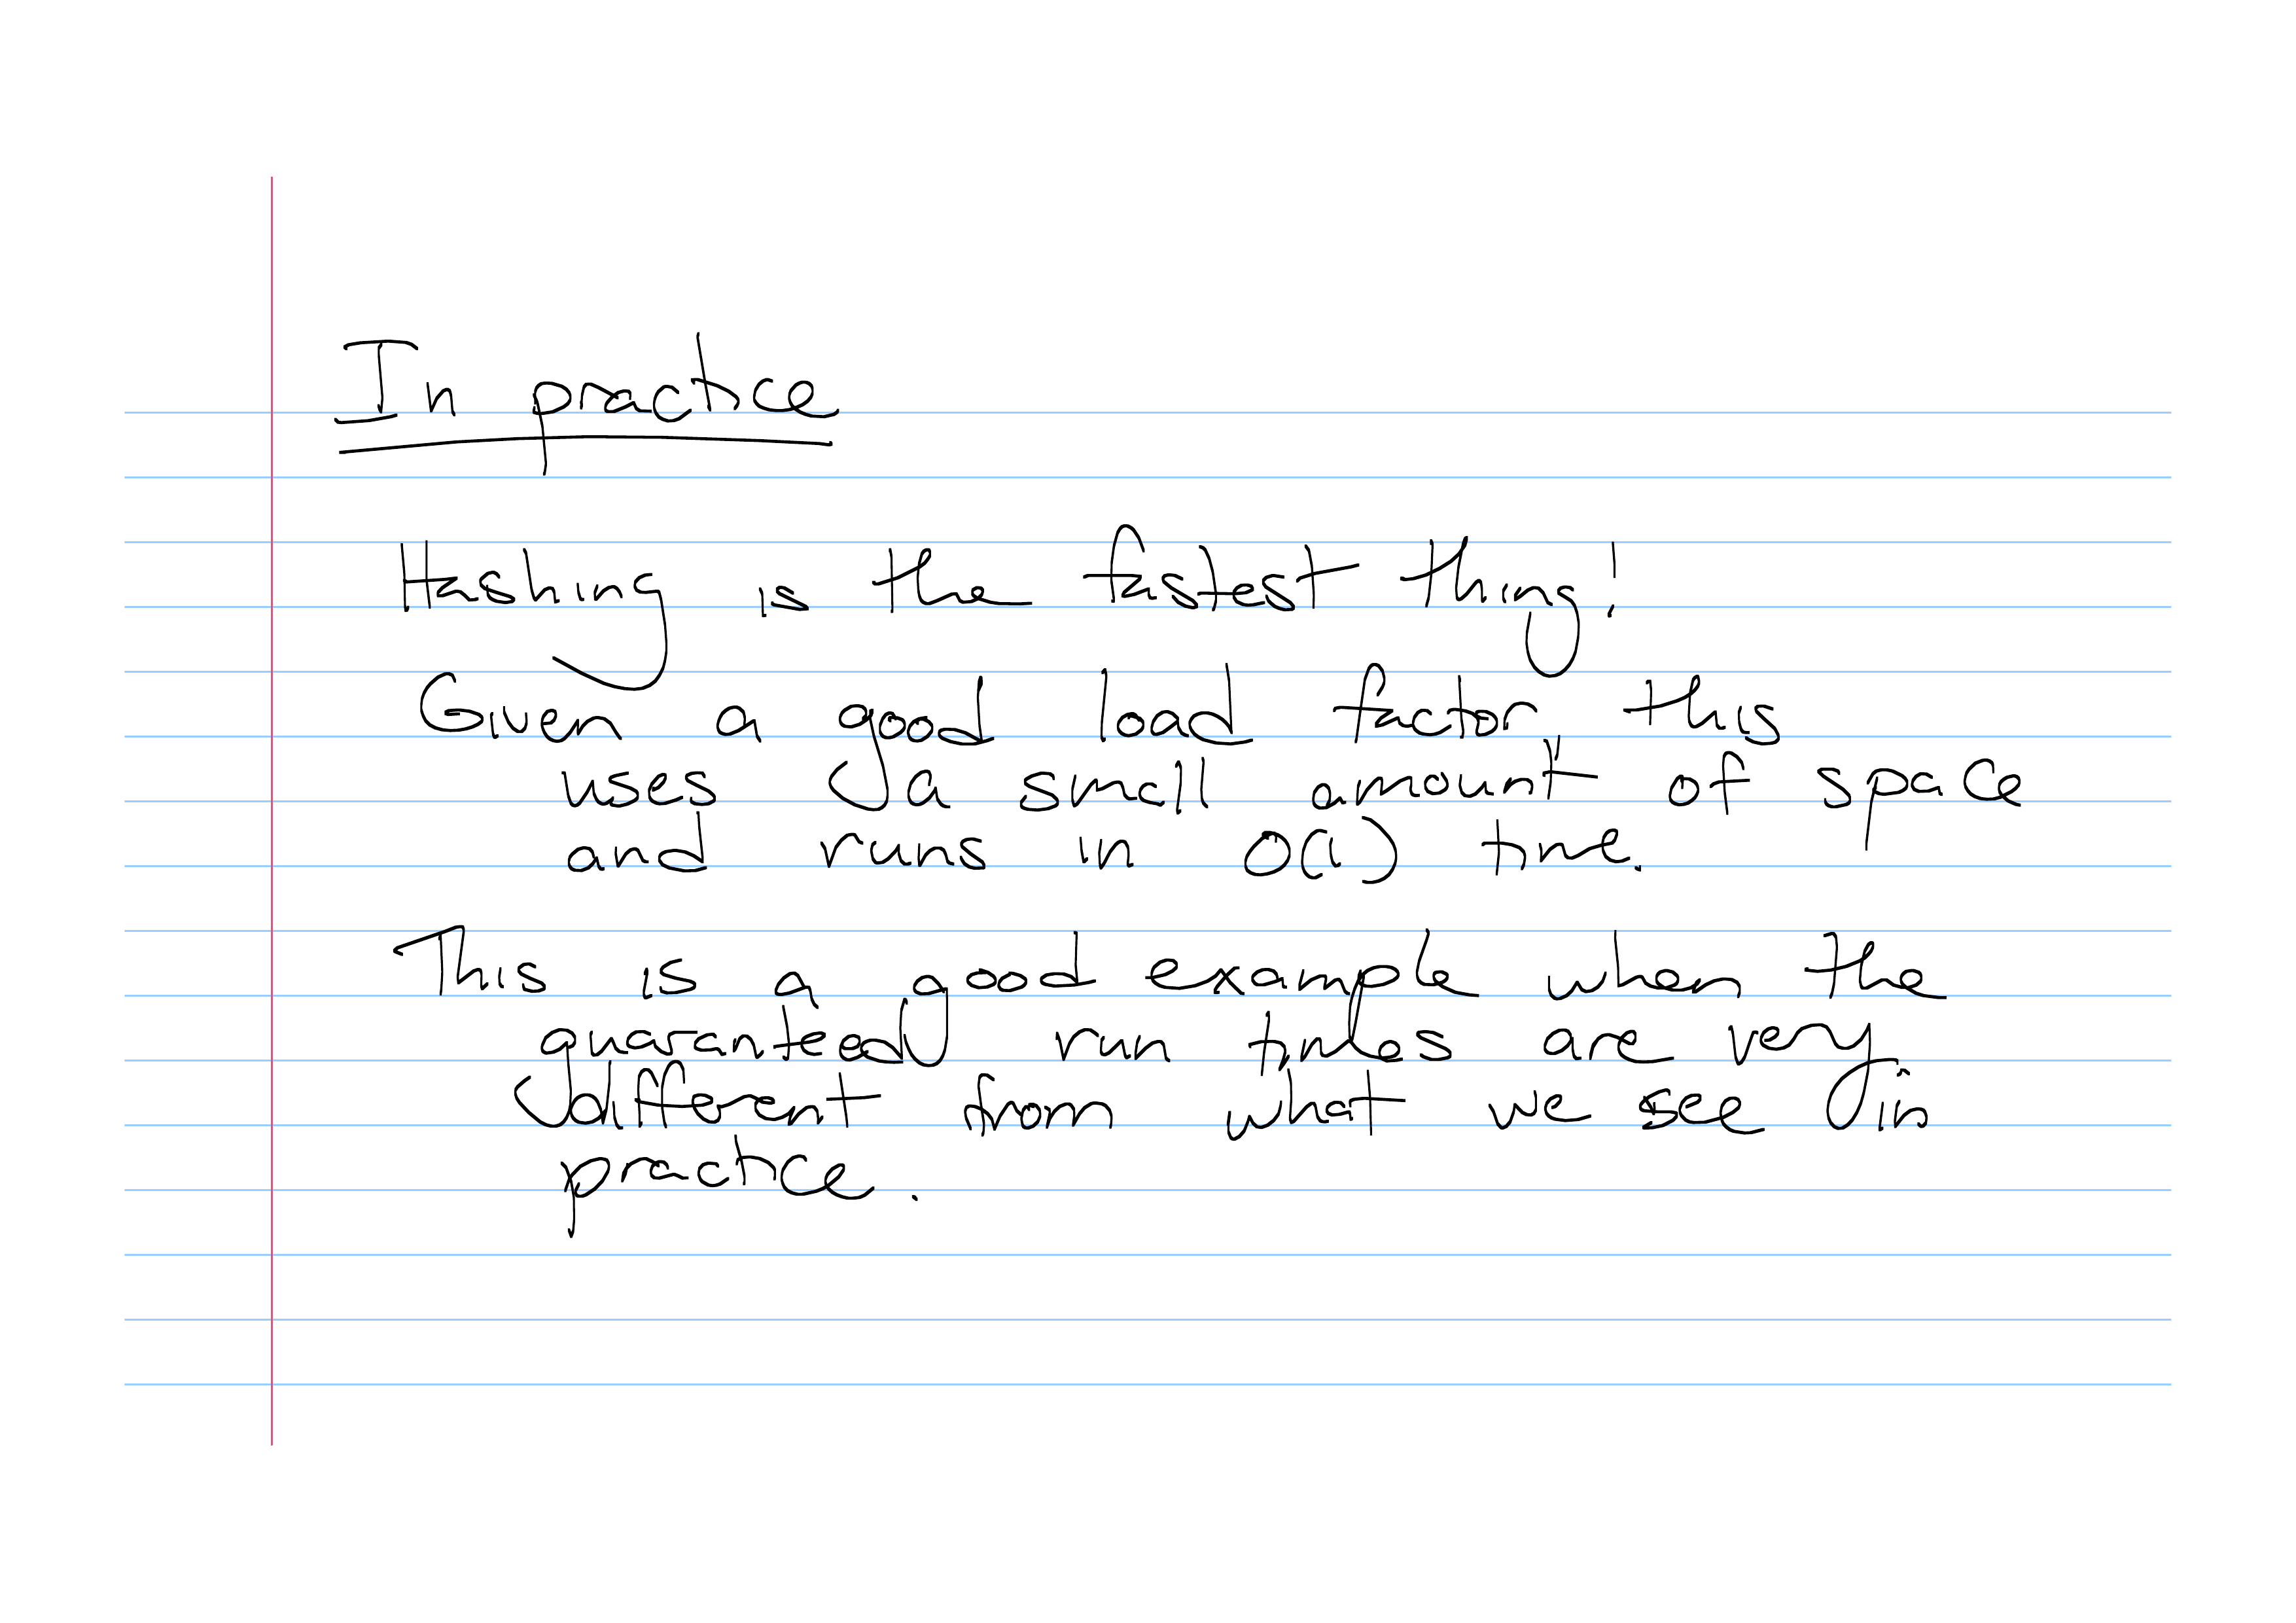 In practice
Hashing is the fastest thing!
Given a good load factor, this
uses a small amount of space
and runs in O(1) time.
This is a good example when the
guaranteed run times are very
different from what we see in
practice.